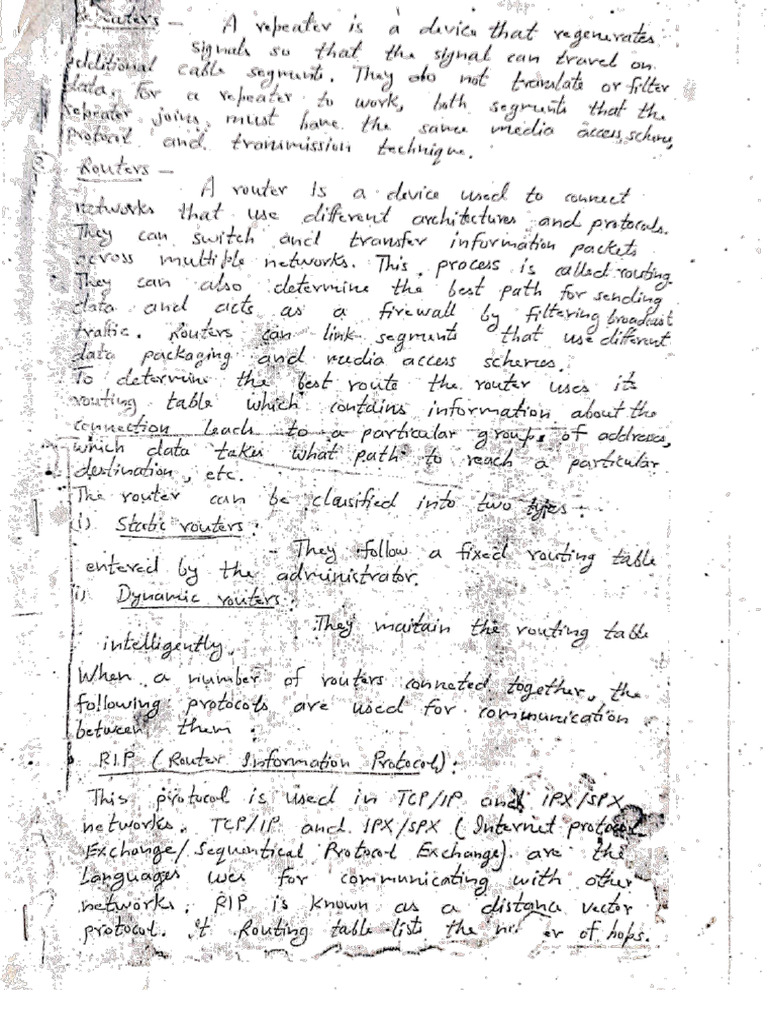 Repeaters - A repeater is a device that regenerates
signals so that the signal can travel on
additional cable segments. They do not translate or filter
data. For a repeater to work, both segments that the
repeater joins must have the same media access scheme,
protocol and transmission technique.
Routers -
A router is a device used to connect
networks that use different architectures and protocols.
They can switch and transfer information packets
across multiple networks. This process is called routing.
They can also determine the best path for sending
data and acts as a firewall by filtering broadcast
traffic. Routers can link segments that use different
data packaging and media access schemes.
To determine the best route the router uses its
routing table which contains information about the
connection leads to a particular groups of addresses,
which data takes what path to reach a particular
destination, etc.
The router can be classified into two types:
i) Static routers:
- They follow a fixed routing table
entered by the administrator.
ii) Dynamic routers:
They maitain the routing table
intelligently.
When a number of routers connated together, the
following protocols are used for communication
between them:
RIP (Router Information Protocol):
This protocol is used in TCP/IP and IPX/SPX
networks. TCP/IP and IPX/SPX (Internet protocol
Exchange/Sequentical Protocol Exchange) are the
Languages wes for communicating with other
networks. RIP is known as a distance vector
protocol. It Routing table lists the er of hops.